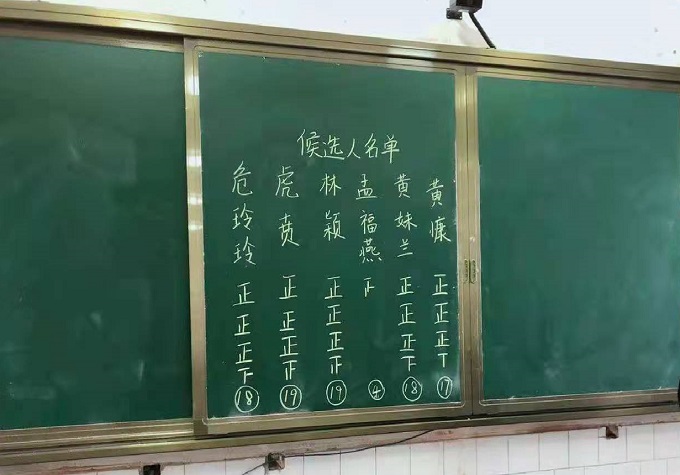 候选人名单
危玲玲 正正正下 ⑱
虎贲 正正正正 ⑲
林颖 正正正正 ⑲
孟福燕 正 ④
黄妹兰 正正正下 ⑱
黄慷 正正正丅 ⑰